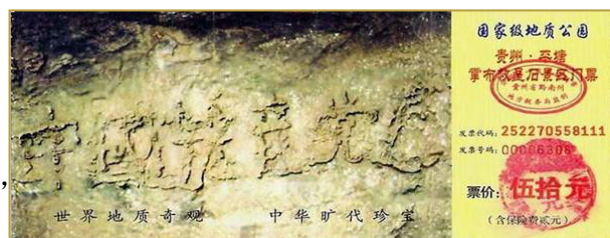 中國共产党亡
世界地质奇观 中华旷代珍宝
国家级地质公园
贵州·平塘
掌布救星石景区门票
贵州省黔南州
发票代码: 252270558111
发票号码: 00006306
票价: 伍拾元
(含保险费贰元)
,